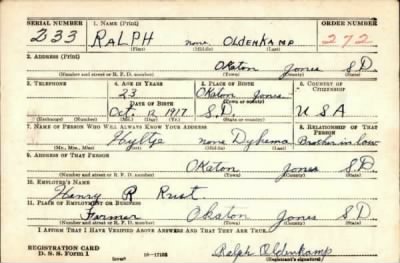 SERIAL NUMBER 1. NAME (Print) ORDER NUMBER
233 RALPH none OLDENKAMP 272
(First) (Middle) (Last)
2. ADDRESS (Print)
Okaton Jones S.D.
(Number and street or R. F. D. number) (Town) (County) (State)
3. TELEPHONE 4. AGE IN YEARS 5. PLACE OF BIRTH 6. COUNTRY OF CITIZENSHIP
23 Okaton Jones
DATE OF BIRTH (Town or county)
Oct. 12 1917 S.D. U S A
(Exchange) (Number) (Mo.) (Day) (Yr.) (State or country)
7. NAME OF PERSON WHO WILL ALWAYS KNOW YOUR ADDRESS 8. RELATIONSHIP OF THAT PERSON
none Dykema Brother in law
(Mr., Mrs., Miss) (First) (Middle) (Last)
9. ADDRESS OF THAT PERSON
Okaton Jones S.D.
(Number and street or R. F. D. number) (Town) (County) (State)
10. EMPLOYER'S NAME
Henry R Rust
11. PLACE OF EMPLOYMENT OR BUSINESS
Farmer Okaton Jones S D
(Number and street or R. F. D. number) (Town) (County) (State)
I AFFIRM THAT I HAVE VERIFIED ABOVE ANSWERS AND THAT THEY ARE TRUE.
REGISTRATION CARD
D. S. S. Form 1 16-17105 Ralph Oldenkamp
(Registrant's signature)